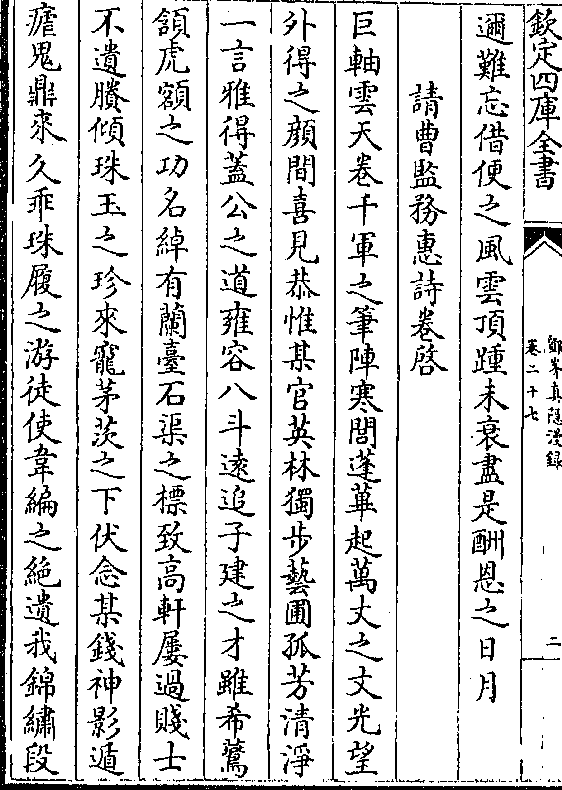 欽定四庫全書
鄮峯真隠漫録
卷二十七
二
邇難忘借便之風雲頂踵未衰盡是酬恩之日月
請曹監務惠詩卷啓
巨軸雲天卷千軍之筆陣寒閭蓬蓽起萬丈之文光望
外得之顔間喜見恭惟某官英林獨步藝圃孤芳清淨
一言雅得蓋公之道雍容八斗遠追子建之才雖希鷰
頷虎額之功名綽有蘭臺石渠之標致高軒屢過賤士
不遺賸傾珠玉之珍來寵茅茨之下伏念某錢神影遁
瘧鬼鼎來久乖珠履之游徒使韋編之絶遺我錦繡段